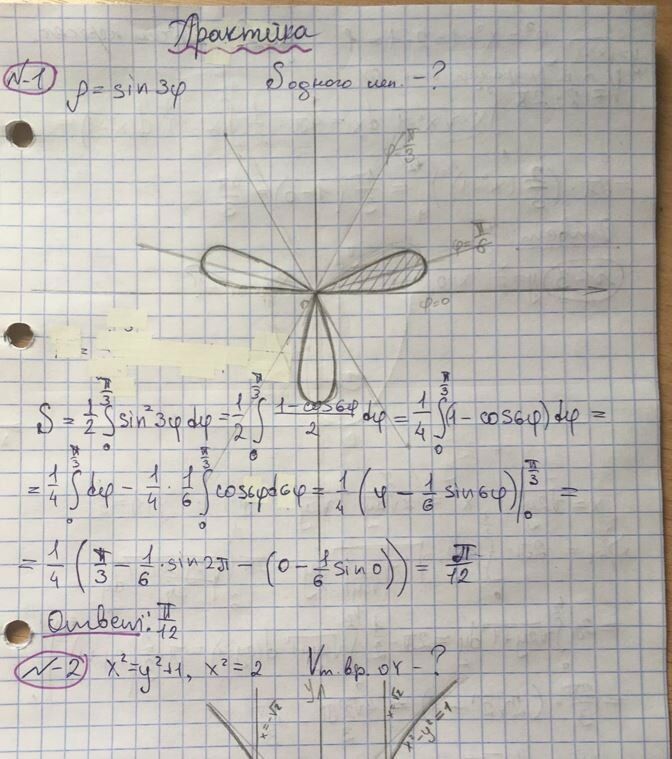 Практика
N-1 ρ = sin 3φ S одного леп. - ?
φ = π/3
φ = π/6
0 φ=0
=
S = 1/2 ∫₀^(π/3) sin² 3φ dφ = 1/2 ∫₀^(π/3) (1-cos6φ)/2 dφ = 1/4 ∫₀^(π/3) (1 - cos6φ) dφ =
= 1/4 ∫₀^(π/3) dφ - 1/4 · 1/6 ∫₀^(π/3) cos6φ d6φ = 1/4 (φ - 1/6 sin6φ) |₀^(π/3) =
= 1/4 (π/3 - 1/6 · sin2π - (0 - 1/6 sin0)) = π/12
Ответ: π/12
N-2 x² = y²+1, x² = 2 Vт. вр. OY - ?
y
x=-√2 x=√2 x²-y²=1